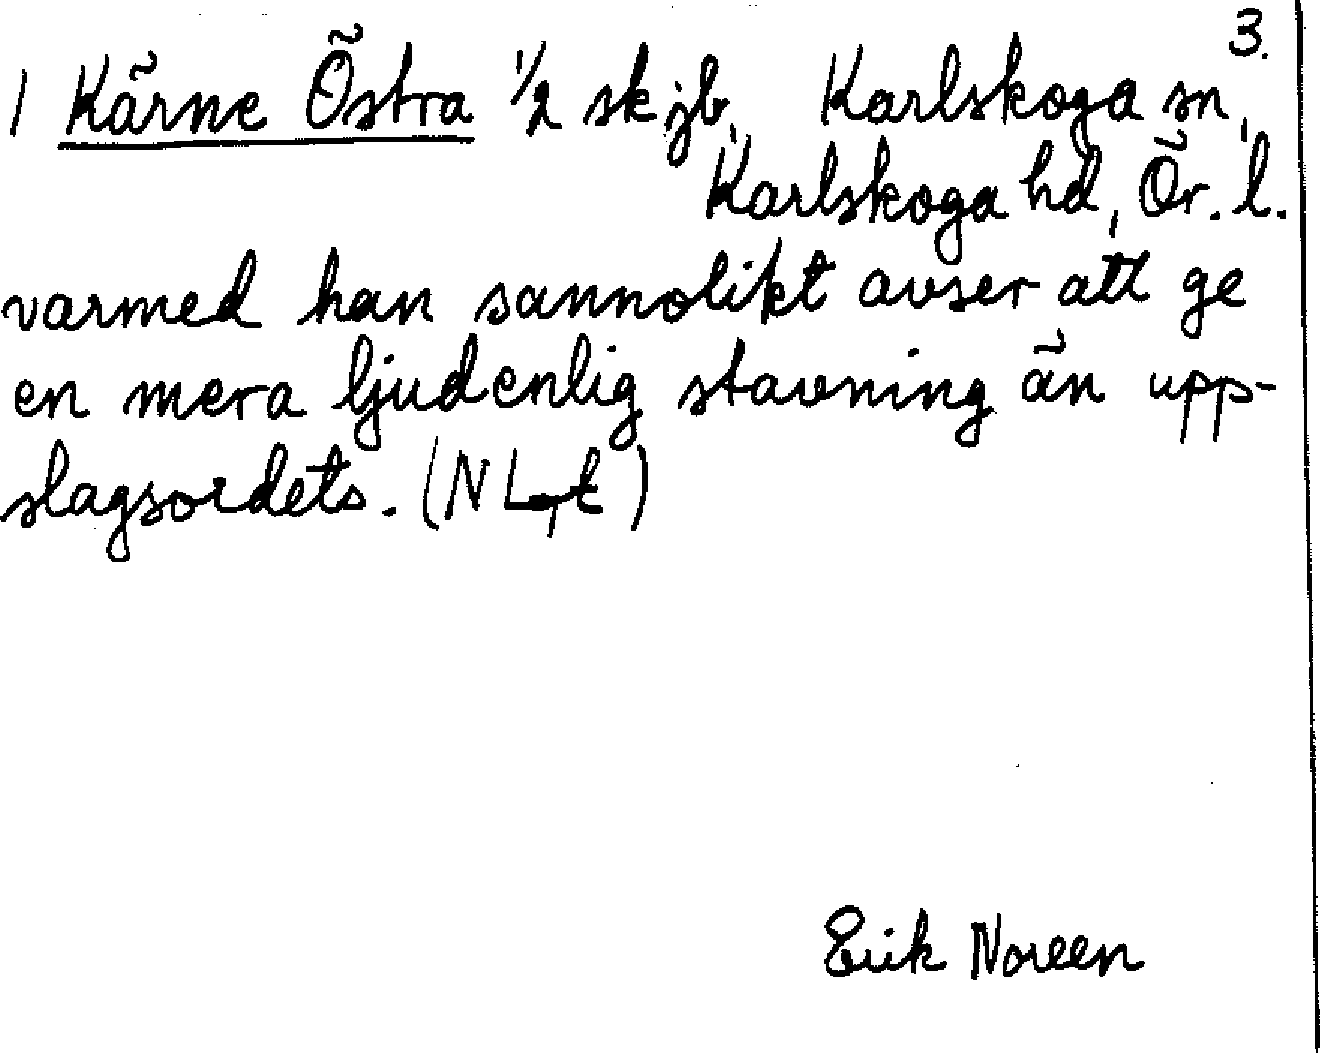 3.
1 Kärne Östra 1/2 skjb, Karlskoga sn,
Karlskoga hd, Ör. l.
varmed han sannolikt avser att ge
en mera ljudenlig stavning än upp-
slagsordets. (N L
Erik Noreen